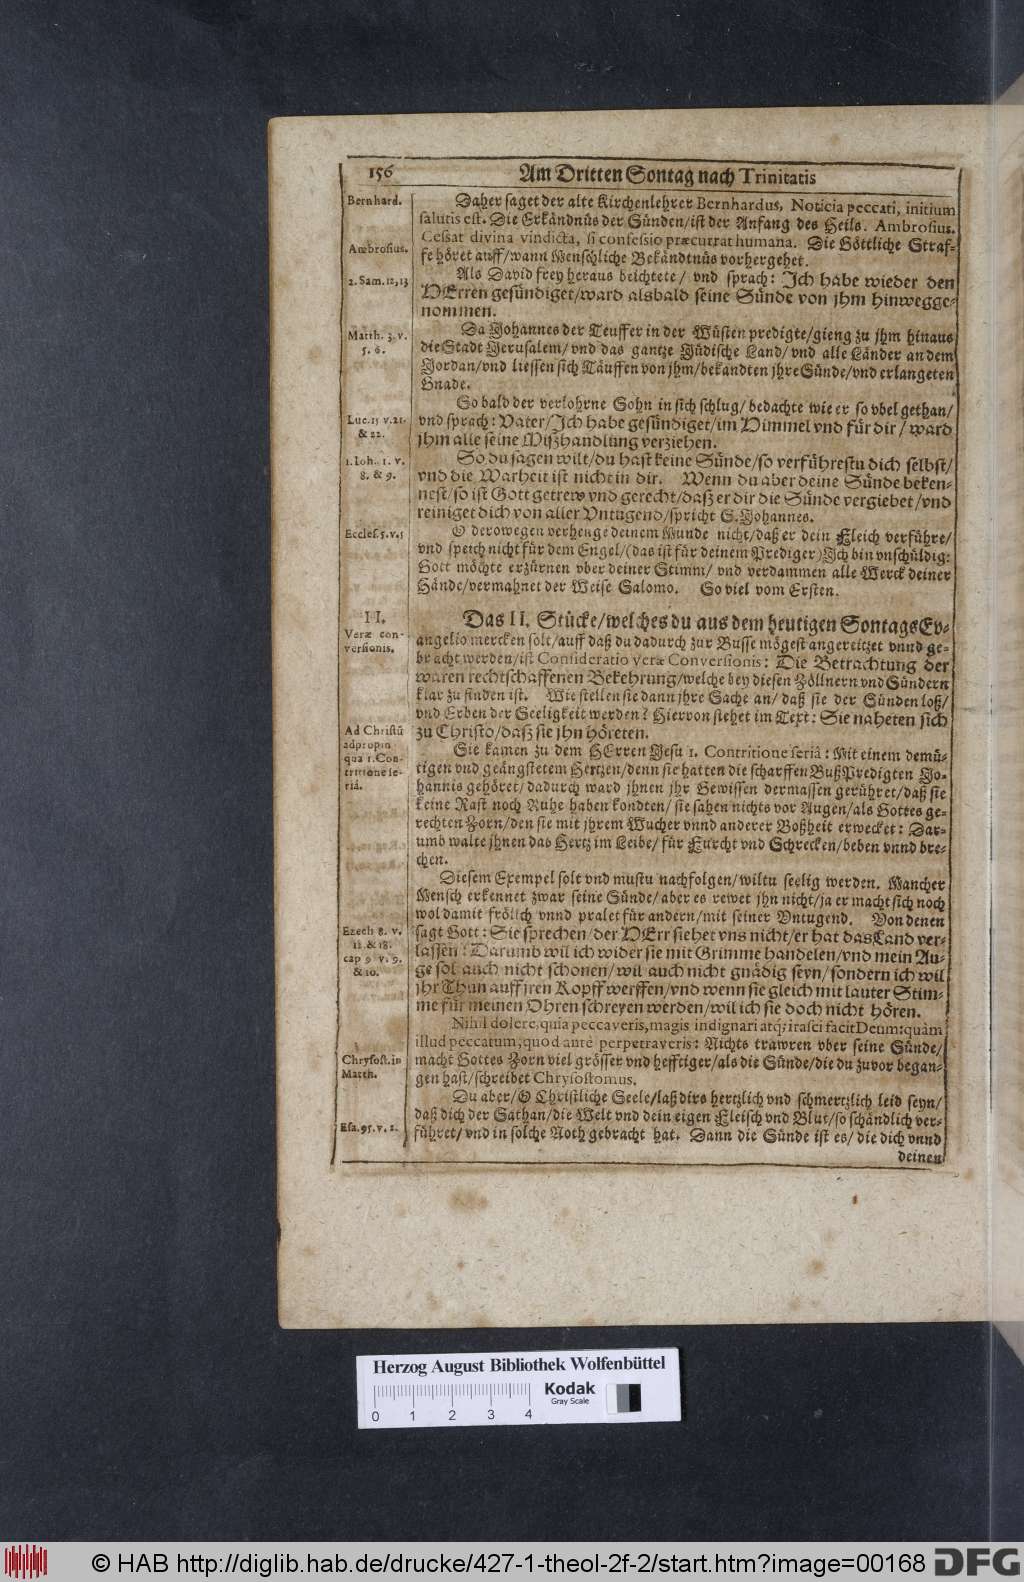 156
Am Dritten Sontag nach Trinitatis
Bernhard.
Daher saget der alte Kirchenlehrer Bernhardus, Noticia peccati, initium
salutis est. Die Erkändnüs der Sünden/ist der Anfang des Heils. Ambrosius.
Ambrosius.
Cessat divina vindicta, si confessio præcurrat humana. Die Göttliche Straf-
fe höret auff/wann Menschliche Bekändtnüs vorhergehet.
2. Sam. 12, 13
Als David frey heraus beichtete/ vnd sprach: Ich habe wieder den
HErren gesündiget/ward alsbald seine Sünde von jhm hinwegge-
nommen.
Matth. 3. v.
5. 6.
Da Johannes der Teuffer in der Wüsten predigte/gieng zu jhm hinaus
die Stadt Jerusalem/vnd das gantze Jüdische Land/vnd alle Länder an dem
Jordan/vnd liessen sich Täuffen von jhm/bekandten jhre Sünde/vnd erlangeten
Gnade.
Luc. 15 v. 21.
& 22.
So bald der verlohrne Sohn in sich schlug/ bedachte wie er so vbel gethan/
vnd sprach: Vater/Ich habe gesündiget/im Himmel vnd für dir/ ward
jhm alle seine Mißhandlung verziehen.
1. Ioh. 1. v.
8. & 9.
So du sagen wilt/du hast keine Sünde/so verführestu dich selbst/
vnd die Warheit ist nicht in dir. Wenn du aber deine Sünde beken-
nest/so ist Gott getrew vnd gerecht/daß er dir die Sünde vergiebet/vnd
reiniget dich von aller Vntugend/spricht S. Johannes.
Eccles. 5. v. 5
O derowegen verhenge deinem Munde nicht/daß er dein Fleich verführe/
vnd sprich nicht für dem Engel/(das ist für deinem Prediger) Ich bin vnschüldig:
Gott möchte erzürnen vber deiner Stimm/ vnd verdammen alle Werck deiner
Hände/vermahnet der Weise Salomo. So viel vom Ersten.
II.
Veræ con-
versionis.
Das II. Stücke/welches du aus dem heutigen Sontags Ev-
angelio mercken solt/auff daß du dadurch zur Busse mögest angereitzet vnnd ge-
bracht werden/ist Consideratio veræ Conversionis: Die Betrachtung der
waren rechtschaffenen Bekehrung/welche bey diesen Zöllnern vnd Sündern
klar zu finden ist. Wie stellen sie dann jhre Sache an/ daß sie der Sünden loß/
vnd Erben der Seeligkeit werden? Hiervon siehet im Text: Sie naheten sich
zu Christo/daß sie jhn höreten.
Ad Christũ
adpropin
qua 1. Con-
tritione se-
riâ.
Sie kamen zu dem HErren Jesu 1. Contritione seriâ: Mit einem demü-
tigen vnd geängstetem Hertzen/denn sie hatten die scharffen BußPredigten Jo-
hannis gehöret/dadurch ward jhnen jhr Gewissen dermassen gerühret/daß sie
keine Rast noch Ruhe haben kondten/ sie sahen nichts vor Augen/als Gottes ge-
rechten Zorn/den sie mit jhrem Wucher vnnd anderer Boßheit erwecket: Dar-
umb walte jhnen das Hertz im Leibe/ für Furcht vnd Schrecken/beben vnnd bre-
chen.
Diesem Exempel solt vnd mustu nachfolgen/wiltu seelig werden. Mancher
Mensch erkennet zwar seine Sünde/aber es rewet jhn nicht/ja er macht sich noch
wol damit frölich vnnd pralet für andern/mit seiner Vntugend. Von denen
Ezech 8. v.
12. & 18.
cap 9 v. 9.
& 10.
sagt Gott: Sie sprechen/der HErr siehet vns nicht/er hat das Land ver-
lassen: Darumb wil ich wider sie mit Grimme handelen/vnd mein Au-
ge sol auch nicht schonen/wil auch nicht gnädig seyn/sondern ich wil
jhr Thun auff jren Kopff werffen/vnd wenn sie gleich mit lauter Stim-
me für meinen Ohren schreyen werden/wil ich sie doch nicht hören.
Nihil dolere, quia peccaveris, magis indignari atq; irasci facit Deum: quàm
illud peccatum, quod antè perpetraveris: Nichts trawren vber seine Sünde/
Chrysost. in
Matth.
macht Gottes Zorn viel grösser vnd hefftiger/als die Sünde/die du zuvor began-
gen hast/schreibet Chrysostomus.
Du aber/O Christliche Seele/laß dirs hertzlich vnd schmertzlich leid seyn/
daß dich der Sathan/die Welt vnd dein eigen Fleisch vnd Blut/so schändlich ver-
Esa. 95. v. 2.
führet/ vnd in solche Noth gebracht hat. Dann die Sünde ist es/ die dich vnnd
deinen
Herzog August Bibliothek Wolfenbüttel
Kodak
Gray Scale
0 1 2 3 4
© HAB http://diglib.hab.de/drucke/427-1-theol-2f-2/start.htm?image=00168
DFG